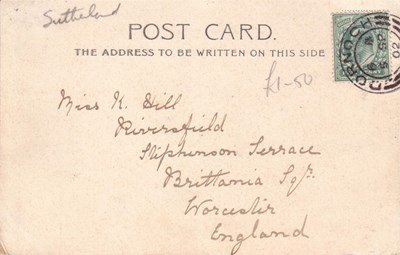 Sutherland
POST CARD.
THE ADDRESS TO BE WRITTEN ON THIS SIDE
£1-50
DORNOCH
02
Miss N. Hill
Riversfield
Stephenson Terrace
Brittania Sqr.
Worcester
England